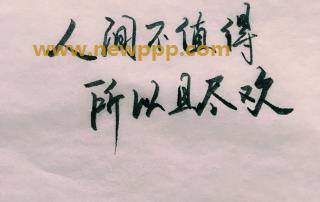 人间不值得
www.newppp.com
所以且尽欢